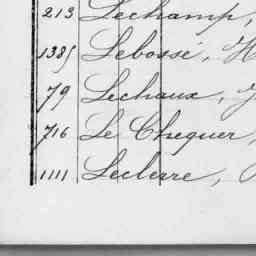 213 Lechamp,
1385 Lebossé, H
79 Lechaux, J
716 Le Chequer,
1111 Leclerre,